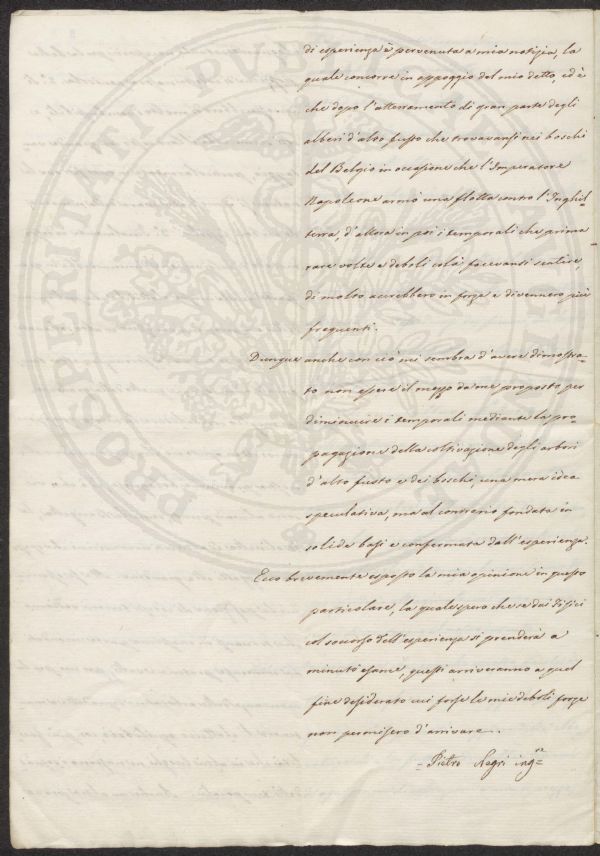 di esperienza è pervenuta a mia notizia, la
quale concorre in appoggio del mio detto, ed è
che dopo l'atterramento di gran parte degli
alberi d'alto fusto che trovavansi nei boschi
del Belgio in occasione che l'Imperatore
Napoleone armò una flotta contro l'Inghil=
terra, d'allora in poi i temporali che prima
rare volte e deboli colà facevansi sentire,
di molto accrebbero in forze e divennero più
frequenti.
Dunque anche con ciò mi sembra d'avere dimostra=
to non essere il mezzo da me proposto per
diminuire i temporali mediante la pro=
pagazione della coltivazione degli arbori
d'alto fusto e dei boschi, una mera idea
speculativa, ma al contrario fondata in
solide basi e confermata dall'esperienza.
Ecco brevemente esposto la mia opinione in questo
particolare, la quale spero che se dai Fisici
col soccorso dell'esperienza si prenderà a
minuto esame, questi arriveranno a quel
fine desiderato cui forse le mie deboli forze
non permisero d'arrivare.
= Pietro Negri ing.re =
PROSPERITATI PVBLICAE